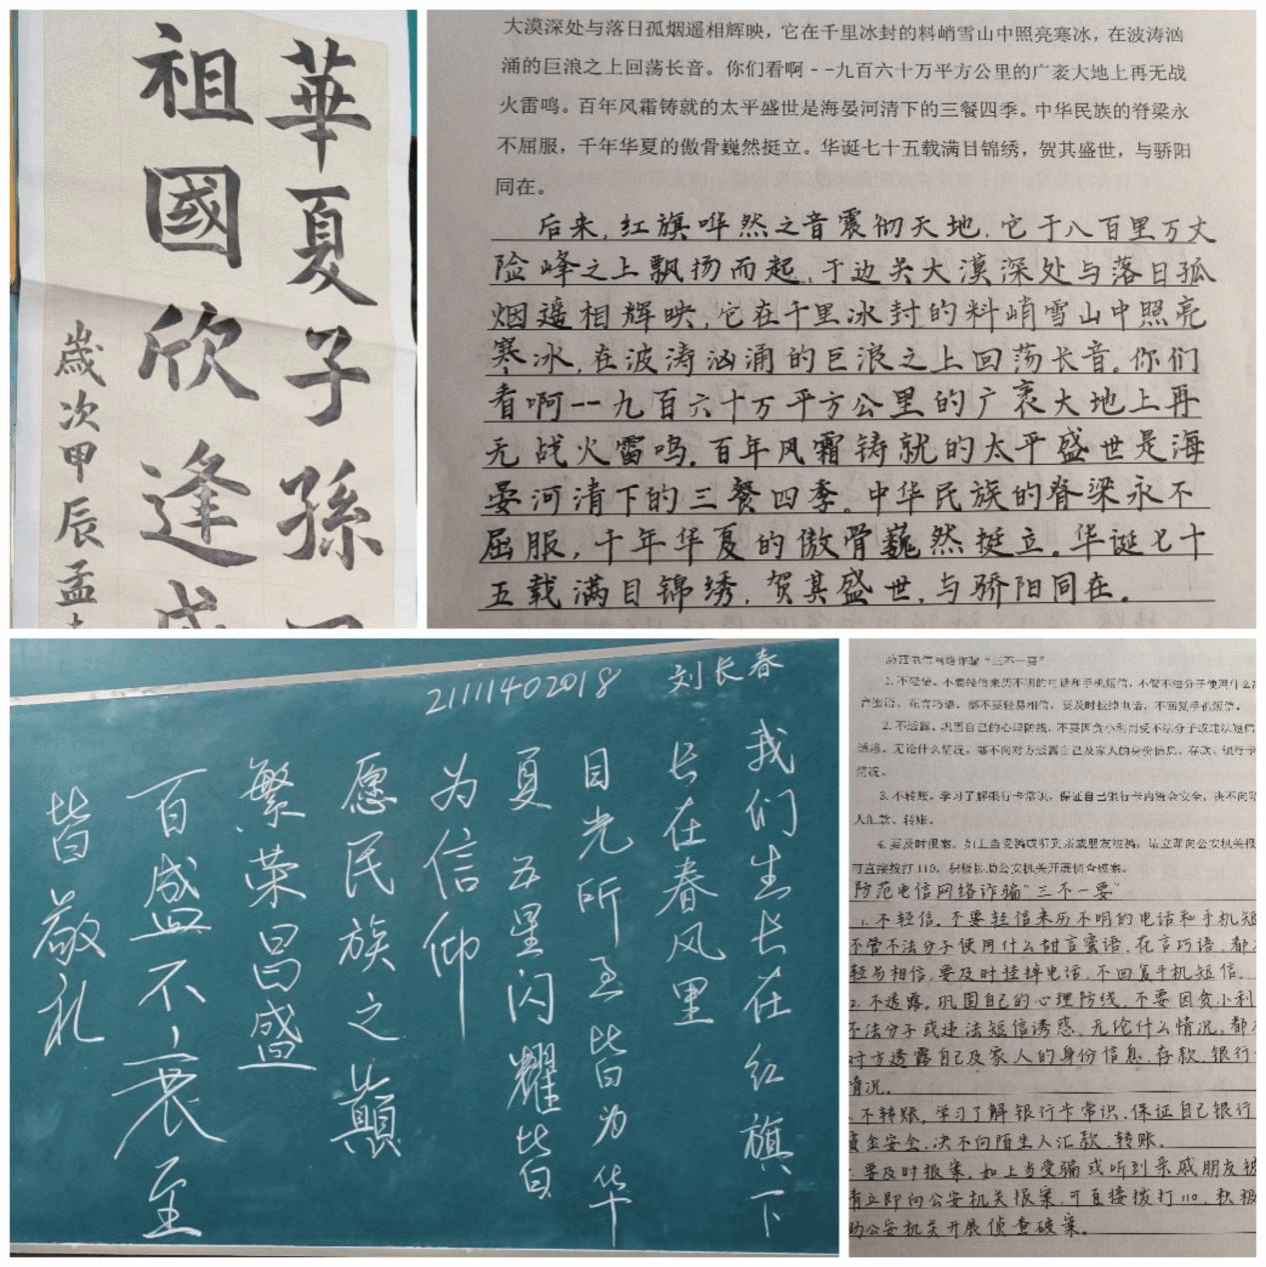 華夏子孫
祖國欣逢
歲次甲辰孟
大漠深处与落日孤烟遥相辉映，它在千里冰封的料峭雪山中照亮寒冰，在波涛汹
涌的巨浪之上回荡长音。你们看啊--九百六十万平方公里的广袤大地上再无战
火雷鸣。百年风霜铸就的太平盛世是海晏河清下的三餐四季。中华民族的脊梁永
不屈服，千年华夏的傲骨巍然挺立。华诞七十五载满目锦绣，贺其盛世，与骄阳
同在。
后来，红旗哗然之音震彻天地，它于八百里万丈
险峰之上飘扬而起，于边关大漠深处与落日孤
烟遥相辉映，它在千里冰封的料峭雪山中照亮
寒冰，在波涛汹涌的巨浪之上回荡长音。你们
看啊--九百六十万平方公里的广袤大地上再
无战火雷鸣。百年风霜铸就的太平盛世是海
晏河清下的三餐四季。中华民族的脊梁永不
屈服，千年华夏的傲骨巍然挺立。华诞七十
五载满目锦绣，贺其盛世，与骄阳同在。
21111402018 刘长春
我们生长在红旗下
长在春风里
目光所至皆为华
夏 五星闪耀皆
为信仰
愿民族之巅
繁荣昌盛
百盛不衰至
皆敬礼
防范电信网络诈骗“三不一要”
1. 不轻信。不要轻信来历不明的电话和手机短信，不管不法分子使用什么
言蜜语、花言巧语，都不要轻易相信，要及时挂掉电话，不回复手机短信。
2. 不透露。巩固自己的心理防线，不要因贪小利而受不法分子或违法短信
诱惑。无论什么情况，都不向对方透露自己及家人的身份信息、存款、银行卡
情况。
3. 不转账。学习了解银行卡常识，保证自己银行卡内资金安全，决不向陌
人汇款、转账。
4. 要及时报案。如上当受骗或听到亲戚朋友被骗，请立即向公安机关报
可直接拨打110，积极协助公安机关开展侦查破案。
防范电信网络诈骗“三不一要”
1. 不轻信。不要轻信来历不明的电话和手机短
不管不法分子使用什么甜言蜜语、花言巧语，都
轻易相信，要及时挂掉电话，不回复手机短信。
2. 不透露。巩固自己的心理防线，不要因贪小利
不法分子或违法短信诱惑。无论什么情况，都
对方透露自己及家人的身份信息、存款、银行
情况。
不转账。学习了解银行卡常识，保证自己银行
资金安全，决不向陌生人汇款、转账。
要及时报案。如上当受骗或听到亲戚朋友被
请立即向公安机关报案，可直接拨打110，积极
助公安机关开展侦查破案。